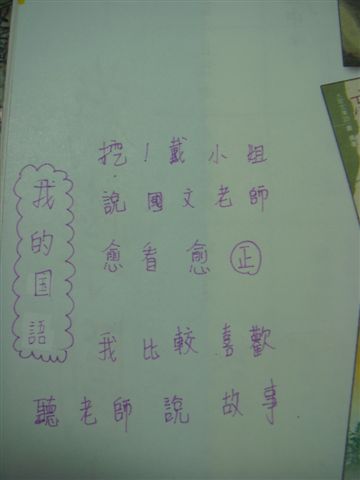 我的国語
挖!戴小姐
說國文老師
愈看愈正
我比較喜歡
聽老師說故事